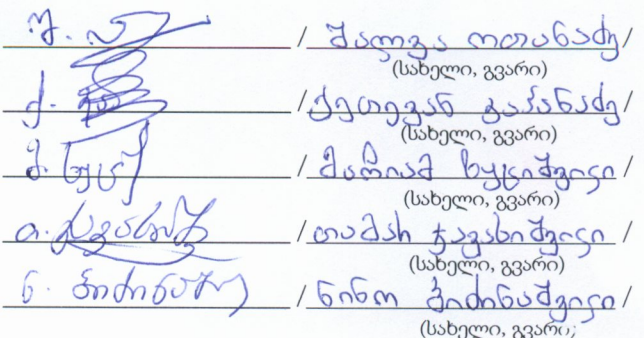 / შალვა ოთანაძე /
(სახელი, გვარი)
ქ. / ქეთევან კაპანაძე /
(სახელი, გვარი)
მ. ხუციშ / მარიამ ხუციშვილი /
(სახელი, გვარი)
თ. / თამარ ჯავახიშვილი /
(სახელი, გვარი)
ნ. / ნინო ბიძინაშვილი /
(სახელი, გვარი)